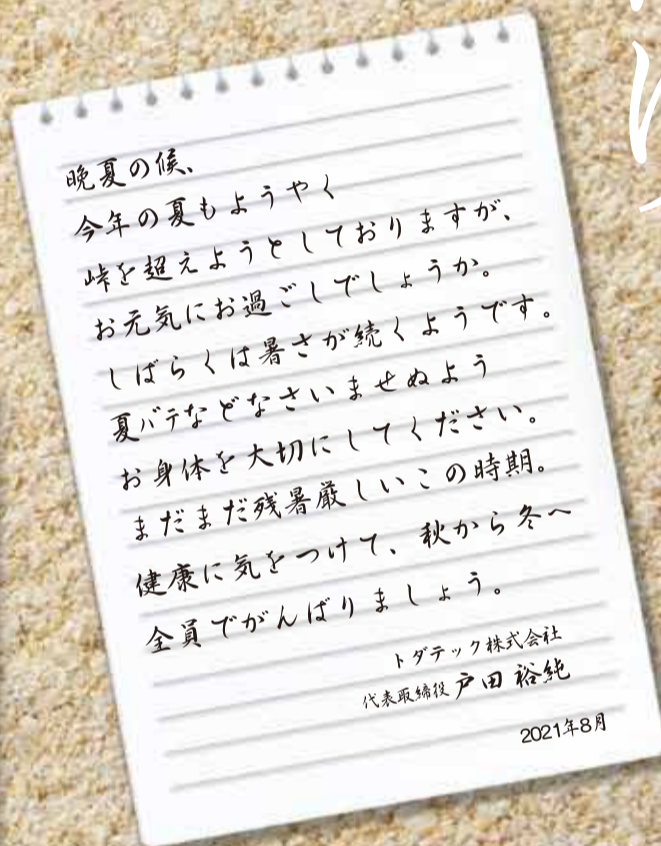 晩夏の候、
今年の夏もようやく
峠を超えようとしておりますが、
お元気にお過ごしでしょうか。
しばらくは暑さが続くようです。
夏バテなどなさいませぬよう
お身体を大切にしてください。
まだまだ残暑厳しいこの時期。
健康に気をつけて、秋から冬へ
全員でがんばりましょう。
トダテック株式会社
代表取締役 戸田 裕純
2021年8月